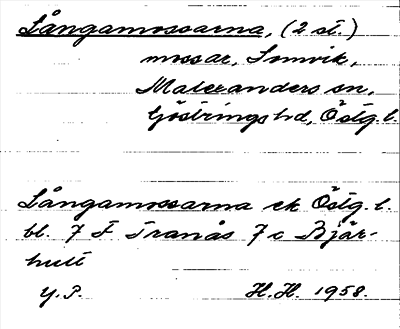 Långamossarna, (2 st.)
mossar, Sunvik,
Malexanders sn,
Göstrings hd, Östg. l.
Långamossarna ek Östg. l.
bl. 7 F Tranås 7 c Bjär-
hult
Y. P. H. H. 1958.